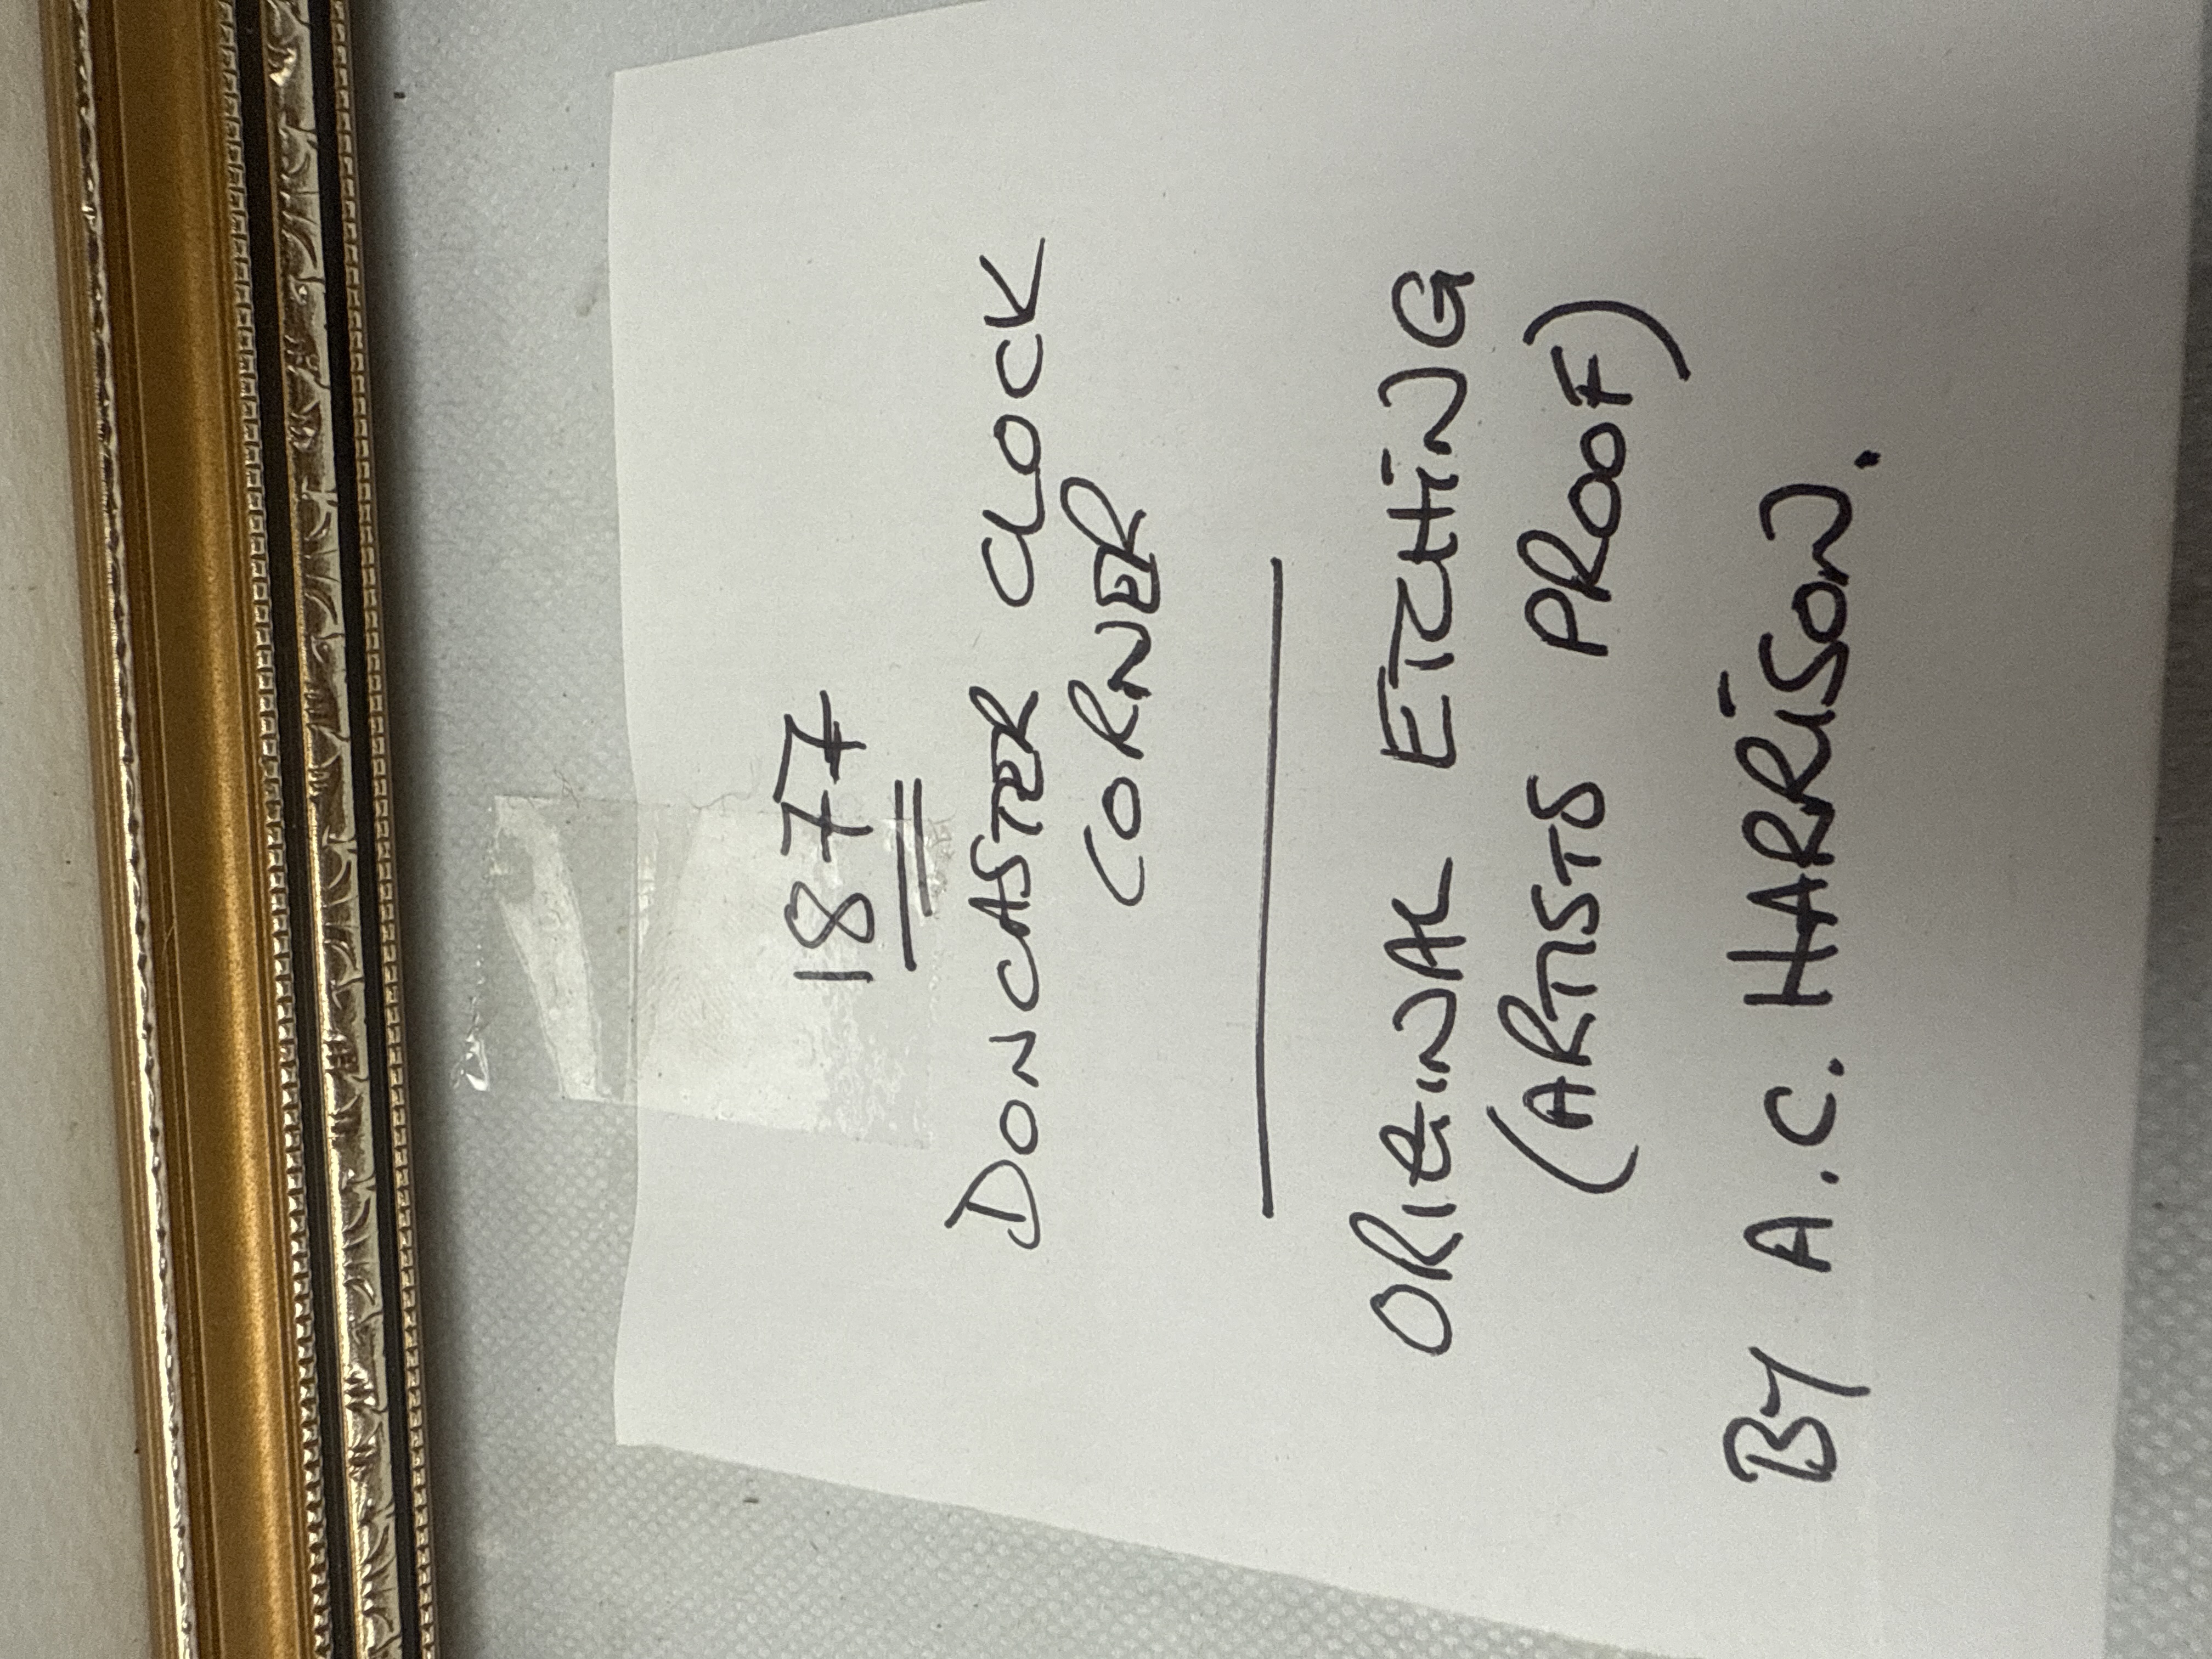 1877
DONCASTER CLOCK
CORNER
ORIGINAL ETCHING
(ARTISTS PROOF)
BY A.C. HARRISON.